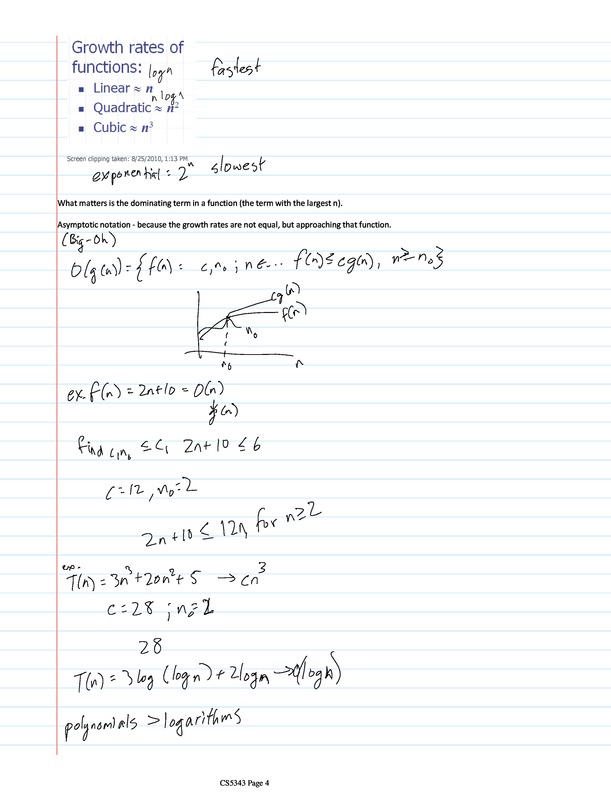 Growth rates of
functions: log n fastest
▪ Linear ≈ n
n log n
▪ Quadratic ≈ n²
▪ Cubic ≈ n³
Screen clipping taken: 8/25/2010, 1:13 PM
exponential: 2ⁿ slowest
What matters is the dominating term in a function (the term with the largest n).
Asymptotic notation - because the growth rates are not equal, but approaching that function.
(Big-Oh)
O(g(n)) = {f(n) : c, n₀ ; n ∈... f(n) ≤ cg(n), n ≥ n₀}
cg(n)
f(n)
n₀
n₀ n
ex. f(n) = 2n+10 = O(n)
(n)
find c, n₀ ≤ c, 2n+10 ≤ 6
c=12, n₀=2
2n+10 ≤ 12n, for n≥2
exp.
T(n) = 3n³+20n²+5 → cn³
c=28 ; n₀=
28
T(n) = 3 log (log n) + 2 log n → O(log n)
polynomials > logarithms
CS5343 Page 4